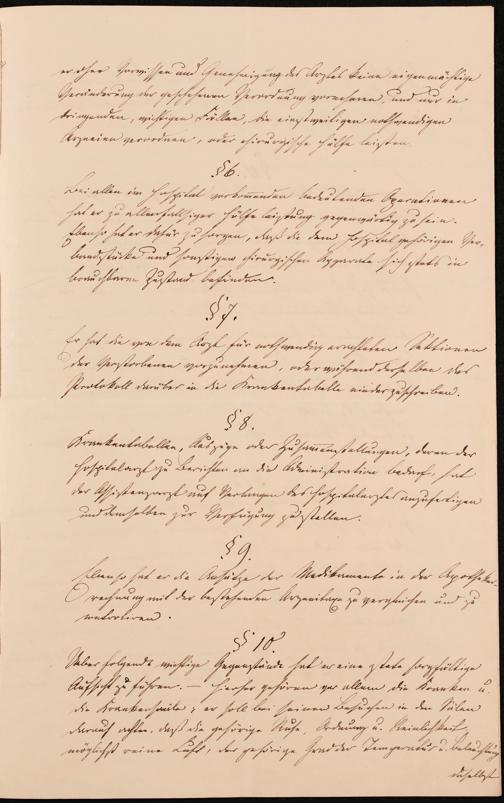 er ohne Vorwissen und Genehmigung des Arztes keine eigenmächtige
Veränderung der geschehenen Verordnung vornehmen, und nur in
dringenden, wichtigen Fällen, die einstweiligen nothwendigen
Arzneien verordnen, oder chirurgische Hülfe leisten.
§ 6.
Bei allen im Hospital vorkommenden bedeutenden Operationen
hat er zu allenfallsiger Hülfeleistung gegenwärtig zu sein.
Ebenso hat er dafür zu sorgen, daß die dem Hospital gehörigen Ver-
bandstücke und sonstigen chirurgischen Apparate sich stets in
brauchbarem Zustand befinden.
§ 7.
Er hat die von dem Arzt für nothwendig erachteten Sektionen
der Verstorbenen vorzunehmen, oder während derselben das
Protokoll darüber in die Krankentabelle niederzuschreiben.
§ 8.
Krankentabellen, Auszüge oder Zusammenstellungen, deren der
Hospitalarzt zu Berichten an die Administration bedarf, hat
der Assistenzarzt auf Verlangen des Hospitalarztes anzufertigen
und demselben zur Verfügung zu stellen.
§ 9.
Ebenso hat er die Ansätze der Medikamente in der Apotheker-
rechnung mit der bestehenden Arzneitaxe zu vergleichen und zu
§ 10.
Ueber folgende wichtige Gegenstände hat er eine stete sorgfältige
Aufsicht zu führen. — Hierher gehören vor allem die Kranken u.
die Krankensäale; er soll bei seinen Besuchen in den Sälen
darauf achten, daß die gehörige Ruhe, Ordnung u. Reinlichkeit,
möglichst reine Luft, der gehörige Grad der Temperatur u. Beleuchtung
daselbst